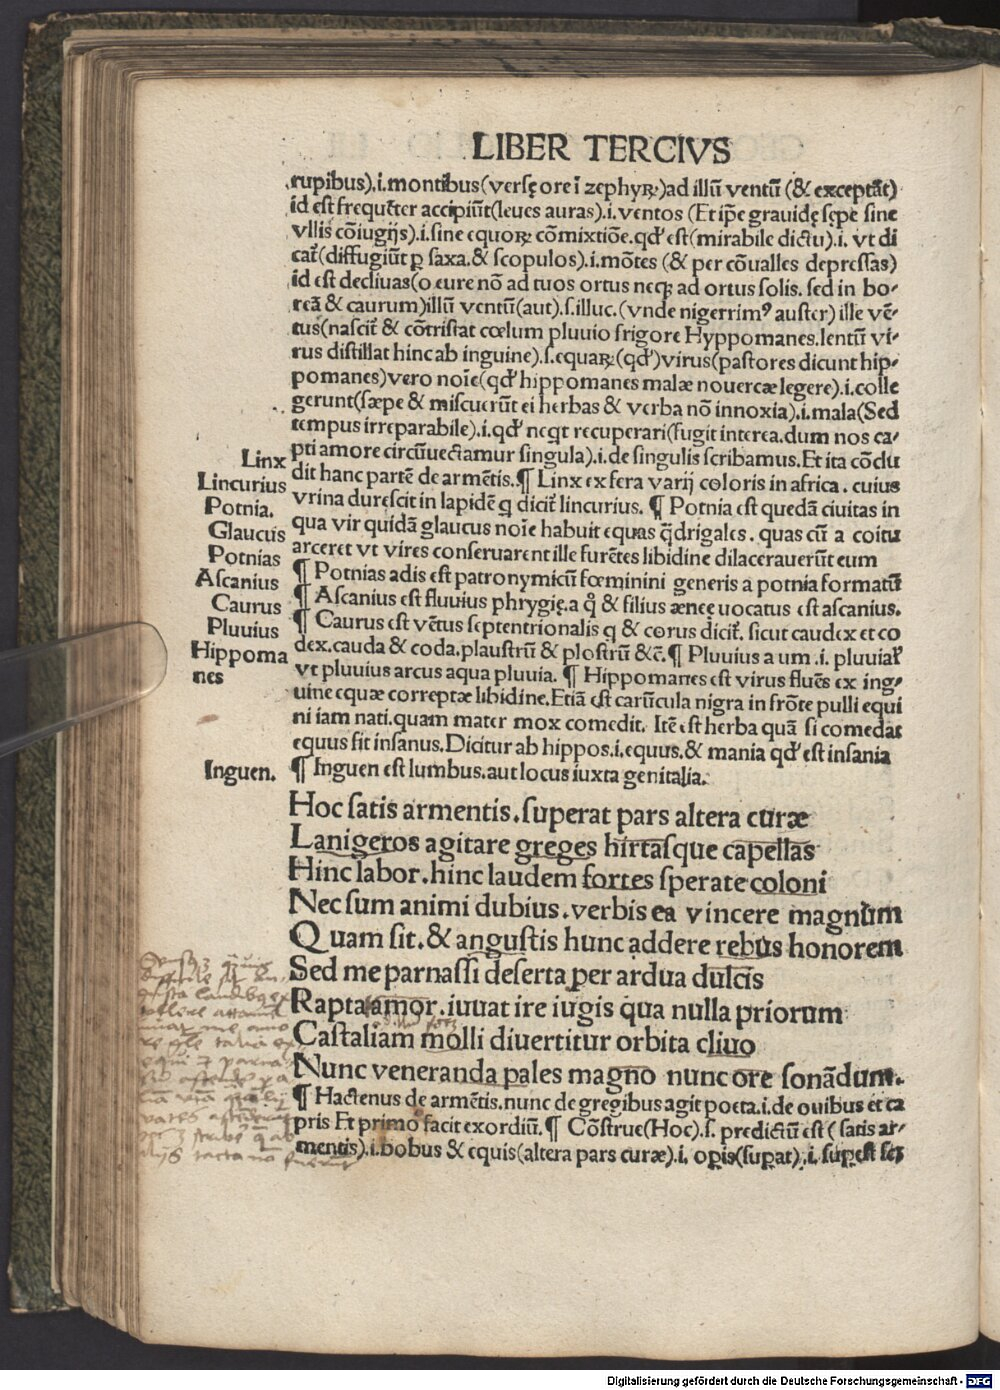 LIBER TERCIVS
rupibus).i.montibus(versę ore ī zephyꝝ)ad illū ventū (& exceptāt)
id est frequēter accipiūt(leues auras).i. ventos (Et ip̄e grauidę sępe sine
vllis cōiugijs).i.sine equoꝝ cōmixtiōe.qđ est(mirabile dictu).i. vt di
cat̄(diffugiūt ꝑ saxa.& scopulos).i.mōtes (& per cōualles depressas)
id est decliuas(o eure nō ad tuos ortus neqꝫ ad ortus solis. sed in bo-
reā & caurum)illū ventū(aut).s.illuc.(vnde nigerrimꝰ auster) ille vē-
tus(nascit̄ & cōtristat cœlum pluuio frigore Hyppomanes.lentū vi-
rus distillat hinc ab inguine).s.equaꝝ(qđ)virus(pastores dicunt hip-
pomanes)vero noīe(qđ hippomanes malæ nouercæ legere).i.colle
gerunt(sæpe & miscuerūt ei herbas & verba nō innoxia).i.mala(Sed
tempus irreparabile).i.qđ neqt recuperari(fugit interea.dum nos ca-
pti amore circūuectamur singula).i.de singulis scribamus.Et ita cōclu
dit hanc partē de armētis.¶ Linx ex fera varij coloris in africa. cuius
vrina durescit in lapidē q̄ dicit̄ lincurius. ¶ Potnia est quedā ciuitas in
qua vir quidā glaucus noīe habuit equas q̄drigales. quas cū a coitu
arceret vt vires conseruarent ille furētes libidine dilacerauerūt eum
¶ Potnias adis est patronymicū fœminini generis a potnia formatū
¶ Ascanius est fluuius phrygię.a q̊ & filius ænęę uocatus est ascanius.
¶ Caurus est vētus septentrionalis q & corus dicit̄. sicut caudex et co
dex.cauda & coda.plaustrū & plostrū &c̄.¶ Pluuius a um .i. pluuial̓
vt pluuius arcus aqua pluuia. ¶ Hippomanes est virus fluēs ex ing-
uine equæ correptæ libidine.Etiā est carūcula nigra in frōte pulli equi
ni iam nati.quam mater mox comedit. Itē est herba quā si comedat
equus fit insanus.Dicitur ab hippos.i.equus.& mania qđ est insania
¶ Inguen est lumbus.aut locus iuxta genitalia.
Linx
Lincurius
Potnia.
Glaucus
Potnias
Ascanius
Caurus
Pluuius
Hippoma
nes
Inguen.
Hoc satis armentis.superat pars altera curæ
Lanigeros agitare greges hirtasque capellas
Hinc labor.hinc laudem fortes sperate coloni
Nec sum animi dubius.verbis ea vincere magnum
Quam sit.& angustis hunc addere rebus honorem
Sed me parnassi deserta per ardua dulcis
Rapta amor.iuuat ire iugis qua nulla priorum
Castaliam molli diuertitur orbita cliuo
Nunc veneranda pales magno nunc ore sonādum.
¶ Hactenus de armētis.nunc de gregibus agit poeta.i.de ouibus et ca
pris Et primo facit exordiū.¶ Cōstrue(Hoc).s. predictū est ( satis ar-
mentis).i.bobus & equis(altera pars curæ).i. oꝑis(suꝑat).i. suꝑest scꝫ
Digitalisierung gefördert durch die Deutsche Forschungsgemeinschaft - DFG